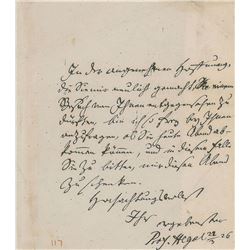 In der angenehmen Hoffnung,
die Sie mir neulich gemacht,
Besuch von Ihnen entgegensehen zu
dürfen, bin ich so frey bey Ihnen
anzufragen, ob Sie heute Abend ab-
kommen können, und in diesem Falle
Sie zu bitten, mir diesen Abend
zu schenken.
Hochachtungsvollst
Ihr ergebenster
Prof. Hegel 26
117